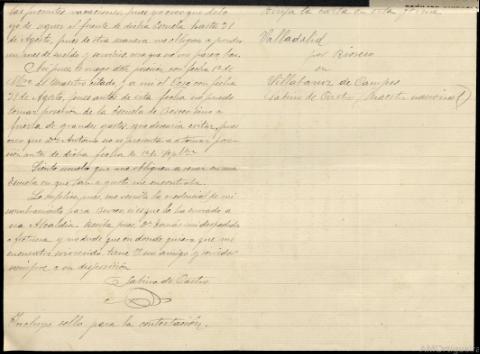 las presentes vacaciones, pues yo creo que deja
de seguir al frente de dicha Escuela hasta 31
de Agosto, pues de otra manera me obligan a perder
un mes de sueldo y servicio cosa que no me parece bien.
Así pues le ruego dote posesión con fecha 1º de
el Maestro citado y a mi el cese con fecha
31 de Agosto, pues antes de esta fecha no puedo
tomar posesión de la Escuela de sino a
fuerza de grandes gastos, que desearía evitar, pues
creo que Dn Antonio no se presentara a tomar pose-
sión antes de dicha fecha 1º de
Siento mucho que me obliguen a cesar en una
Escuela en que tan a gusto me encontraba.
Le suplico, pues, me remita la credencial de mi
nombramiento para si es que la ha enviado a
esa Alcaldía. Reciba pues, Dn Tomás mi despedida
y no olvide que en donde quiera que me
encuentre sirviendo tiene Vd un amigo y servidor
siempre a su disposición
Sabino de Castro
Incluyo sello para la contestación.
Dirija la carta en esta forma
Valladolid
por Rioseco
en
Villalumbroso de Campos
Sabino de Castro (Maestro nacional)